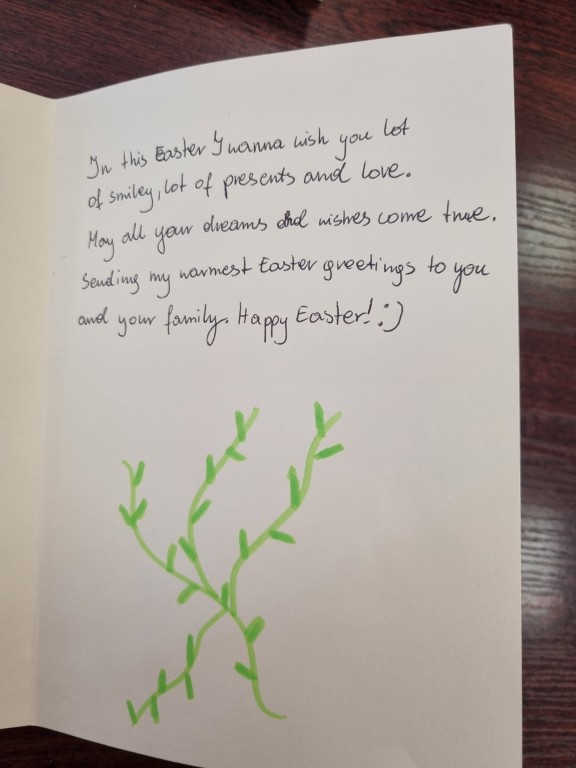 In this Easter I wanna wish you lot
of smiley, lot of presents and love.
May all your dreams and wishes come true.
Sending my warmest Easter greetings to you
and your family. Happy Easter! :)